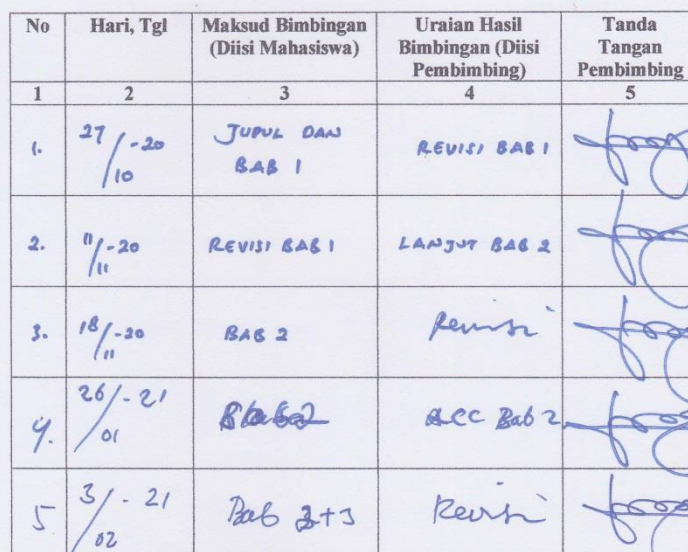 No Hari, Tgl Maksud Bimbingan Uraian Hasil Tanda
(Diisi Mahasiswa) Bimbingan (Diisi Tangan
Pembimbing) Pembimbing
1 2 3 4 5
1. 27/10 -20 JUDUL DAN
BAB 1 REVISI BAB 1
2. 11/11 -20 REVISI BAB 1 LANJUT BAB 2
3. 18/11 -20 BAB 2 Revisi
4. 26/01 - 21 Bab 2 ACC Bab 2
5 3/02 - 21 Bab 2+3 Revisi